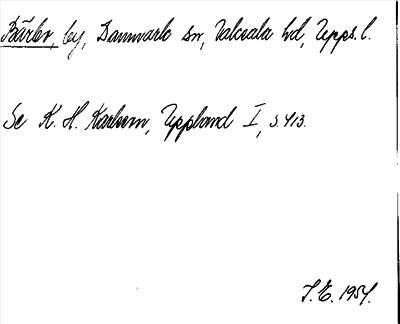 Bärby, by, Danmarks sn, Vaksala hd, Upps. l.
Se K. H. Karlsson, Uppland I, s. 413.
S. E. 1954.